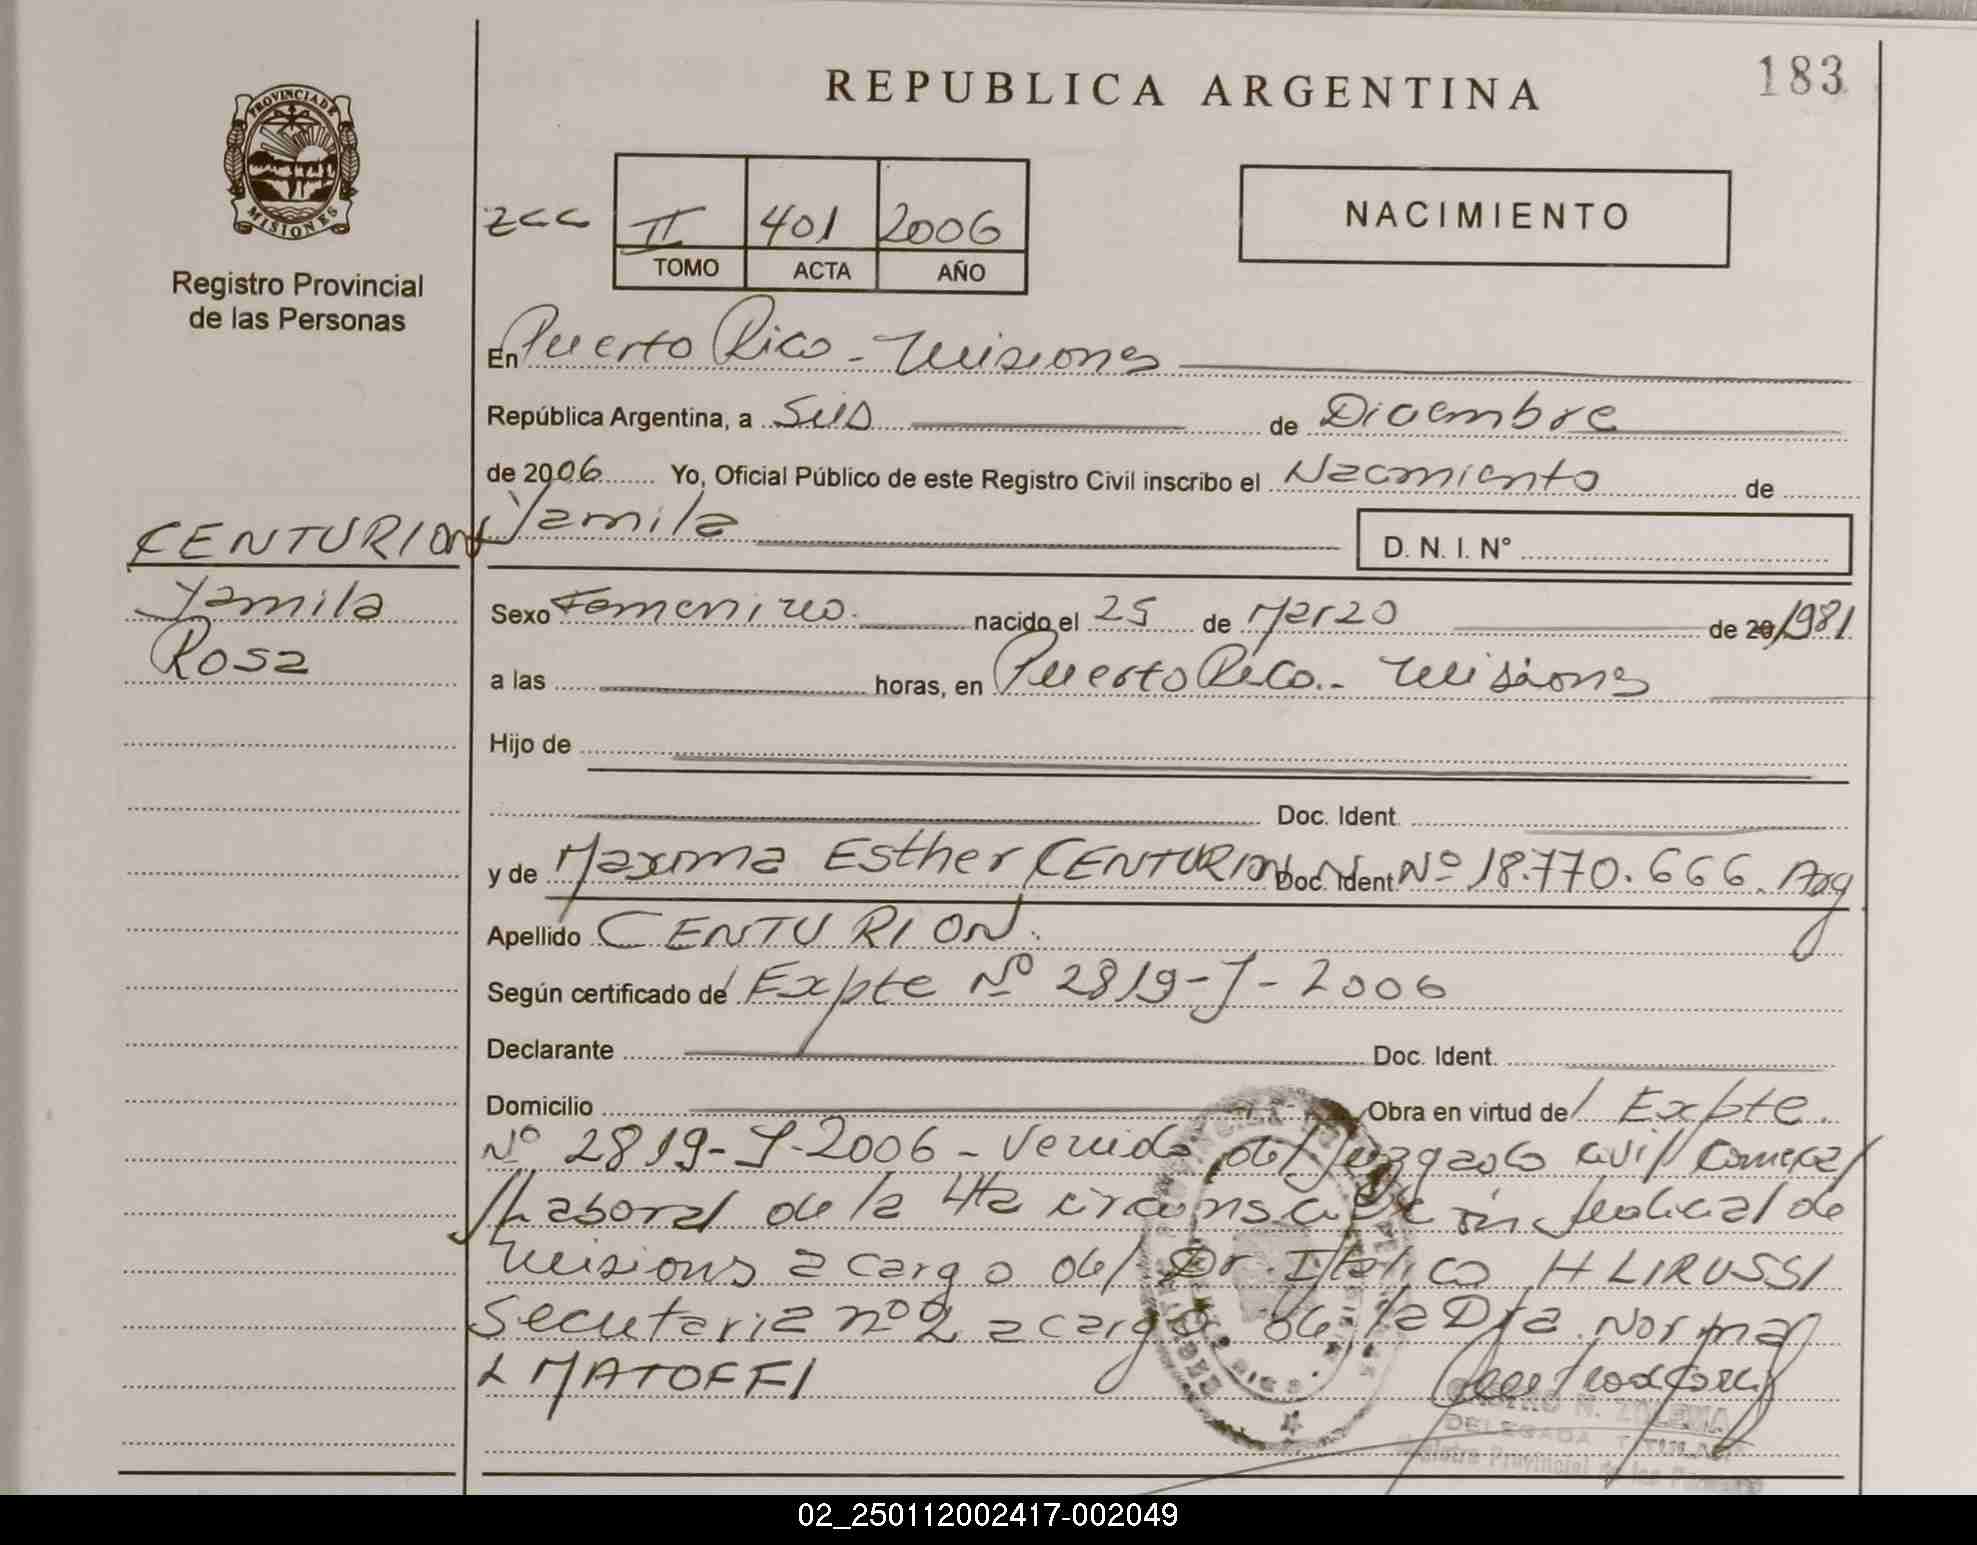 REPUBLICA ARGENTINA
183
PROVINCIA DE
MISIONES
Registro Provincial
de las Personas
II 401 2006
TOMO ACTA AÑO
NACIMIENTO
En Puerto Rico - Misiones
República Argentina, a Seis de Diciembre
de 2006 Yo, Oficial Público de este Registro Civil inscribo el Nacimiento de
CENTURION
Yamila
Rosa
Yamila
D. N. I. Nº
Sexo Femenino. nacido el 25 de Marzo de 20/1981
a las horas, en Puerto Rico.- Misiones
Hijo de
Doc. Ident.
y de Maxima Esther CENTURION Doc. Ident Nº 18.770.666. Arg
Apellido CENTURION.
Según certificado de Expte Nº 2819-J-2006
Declarante Doc. Ident.
Domicilio Obra en virtud de Expte.
Nº 2819-J-2006 - Venido del Juzgado Civil Comercial
Laboral de la 4ta circunscripción Judicial de
Misiones a cargo del Dr. Italico H LIRUSSI
Secretaria nº 2 a cargo de la Dra. Norma
L MATOFFI
DELEGADA TITULAR
Registro Provincial de las Personas
02_250112002417-002049